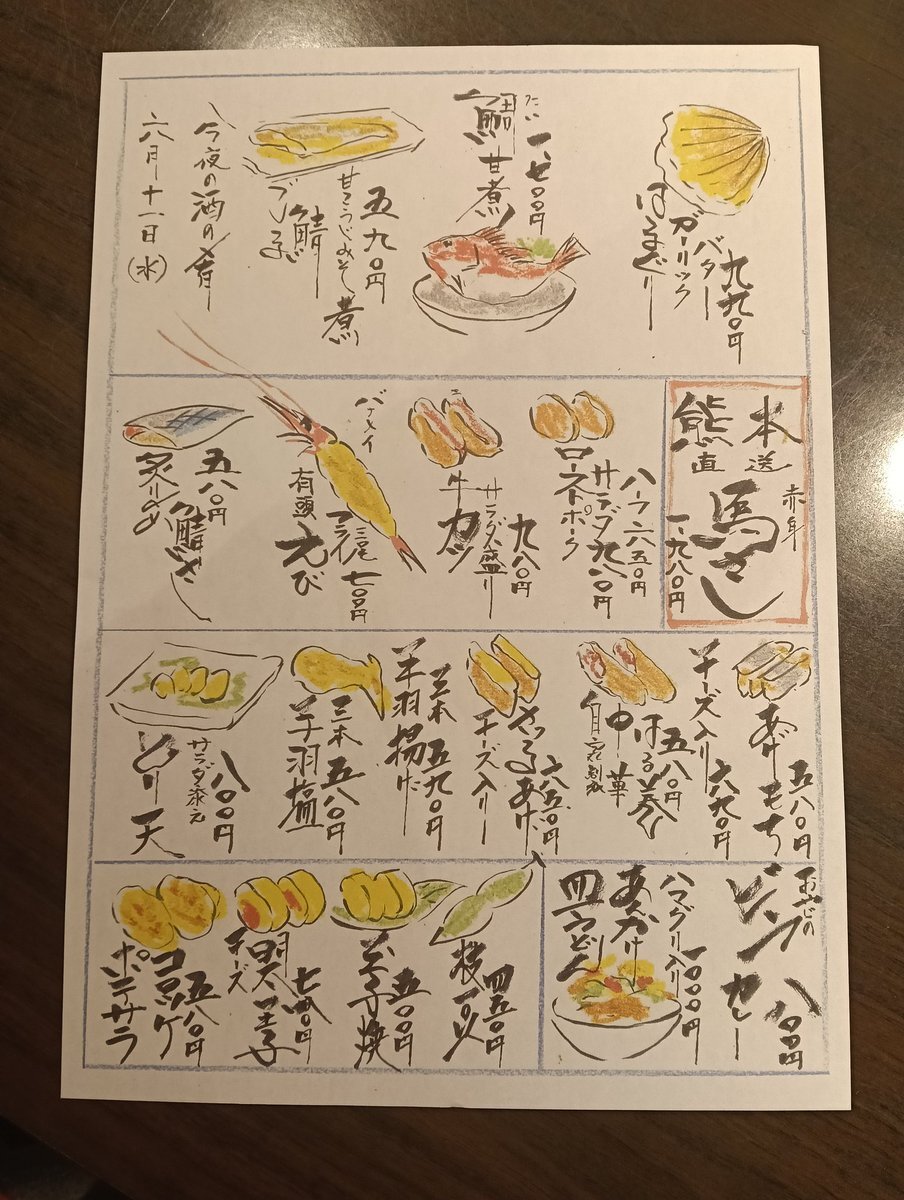 六月十一日(水)
今夜の酒の肴
九九〇円
バター
ガーリック
はまぐり
たい
一、七〇〇円
鯛甘煮
五九〇円
甘こうじみそ煮
鯖
本
熊
直送
赤身
馬さし
一、九八〇円
ハーフ六五〇円
サラダ九八〇円
ロースポーク
九八〇円
サラダ盛り
牛カツ
バナメイ
三尾七〇〇円
フライ
有頭えび
五八〇円
炙りしめ鯖
五八〇円
あげもち
チーズ入り六九〇円
五八〇円
はる巻
中華
自家製
チーズ入り
三本五九〇円
手羽揚げ
三本五八〇円
手羽塩
八〇〇円
サラダ添え
とり天
おやじの
ビーフカレー
ハマグリ入り一、〇〇〇円
あんかけ
皿うどん
四五〇円
枝豆
五〇〇円
玉子焼
明太玉子
チーズ
五八〇円
コロッケ
ポテサラ